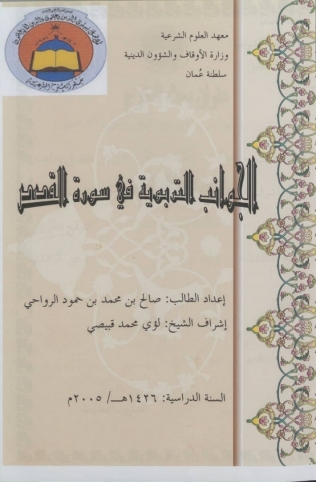 معهد العلوم الشرعية
وزارة الأوقاف والشؤون الدينية
سلطنة عُمان
الجوانب التربوية في سورة القصص
إعداد الطالب: صالح بن محمد بن حمود الرواحي
إشراف الشيخ: لؤي محمد قبيصي
السنة الدراسية: ١٤٢٦هـ/ ٢٠٠٥م